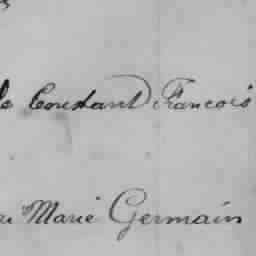 le Constant Francois
Marie Germain